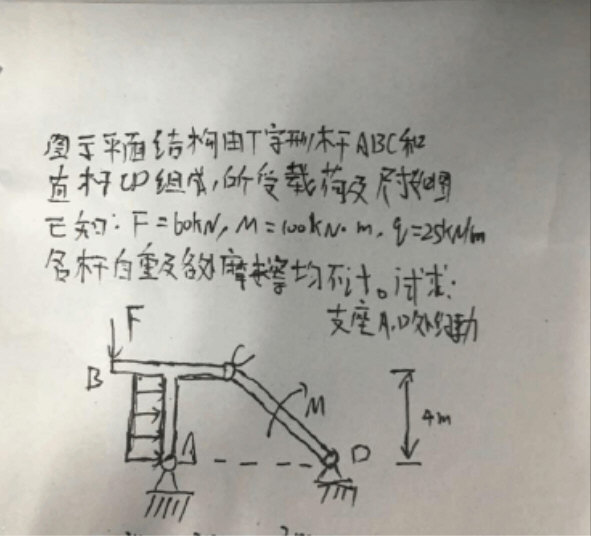 图示平面结构由T字形杆ABC和
直杆CD组成,所受载荷及尺寸如图
已知: F=60kN, M=100kN·m, q=25kN/m
各杆自重及各处摩擦等均不计。试求:
支座A.D处约束力
F
B
C
M
4m
A
D